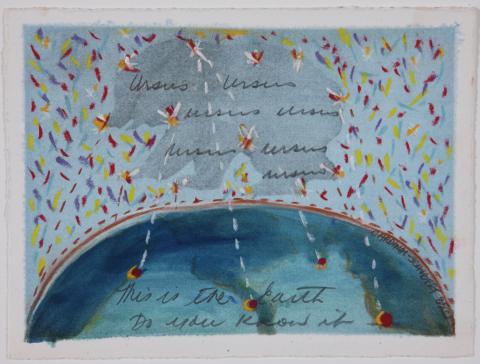 Ursus Ursus
ursus ursus
Ursus ursus
ursus
This is the Earth
Do you know it